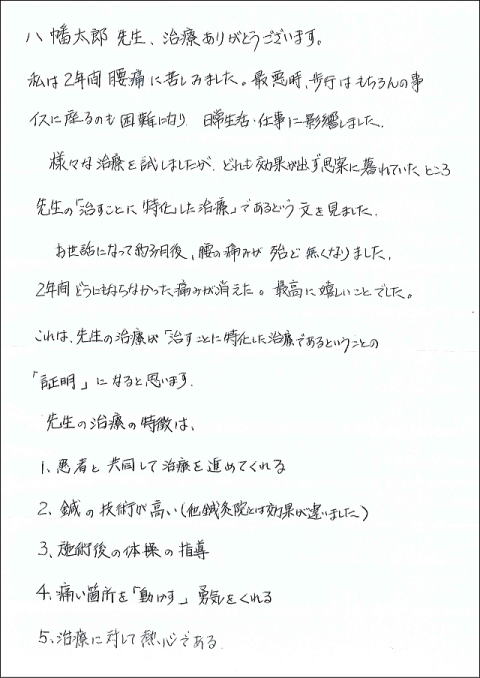 八幡太郎先生、治療ありがとうございます。
私は2年間腰痛に苦しみました。最悪時、歩行はもちろんの事
イスに座るのも困難になり 日常生活・仕事に影響しました。
様々な治療を試しましたが、どれも効果が出ず思案に暮れていたところ
先生の「治すことに特化した治療」であるという文を見ました。
お世話になって約3ヶ月後、腰の痛みが殆ど無くなりました。
2年間どうにもならなかった痛みが消えた。最高に嬉しいことでした。
これは、先生の治療が「治すことに特化した治療であるということの
「証明」になると思います。
先生の治療の特徴は、
1、患者と共同して治療を進めてくれる
2、鍼の技術が高い(他鍼灸院とは効果が違いました)
3、施術後の体操の指導
4、痛い箇所を「動かす」勇気をくれる
5、治療に対して熱心である